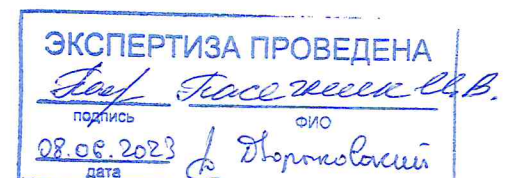 ЭКСПЕРТИЗА ПРОВЕДЕНА
Пасечник И.В.
подпись ФИО
08.06.2023 Дворяковский
дата